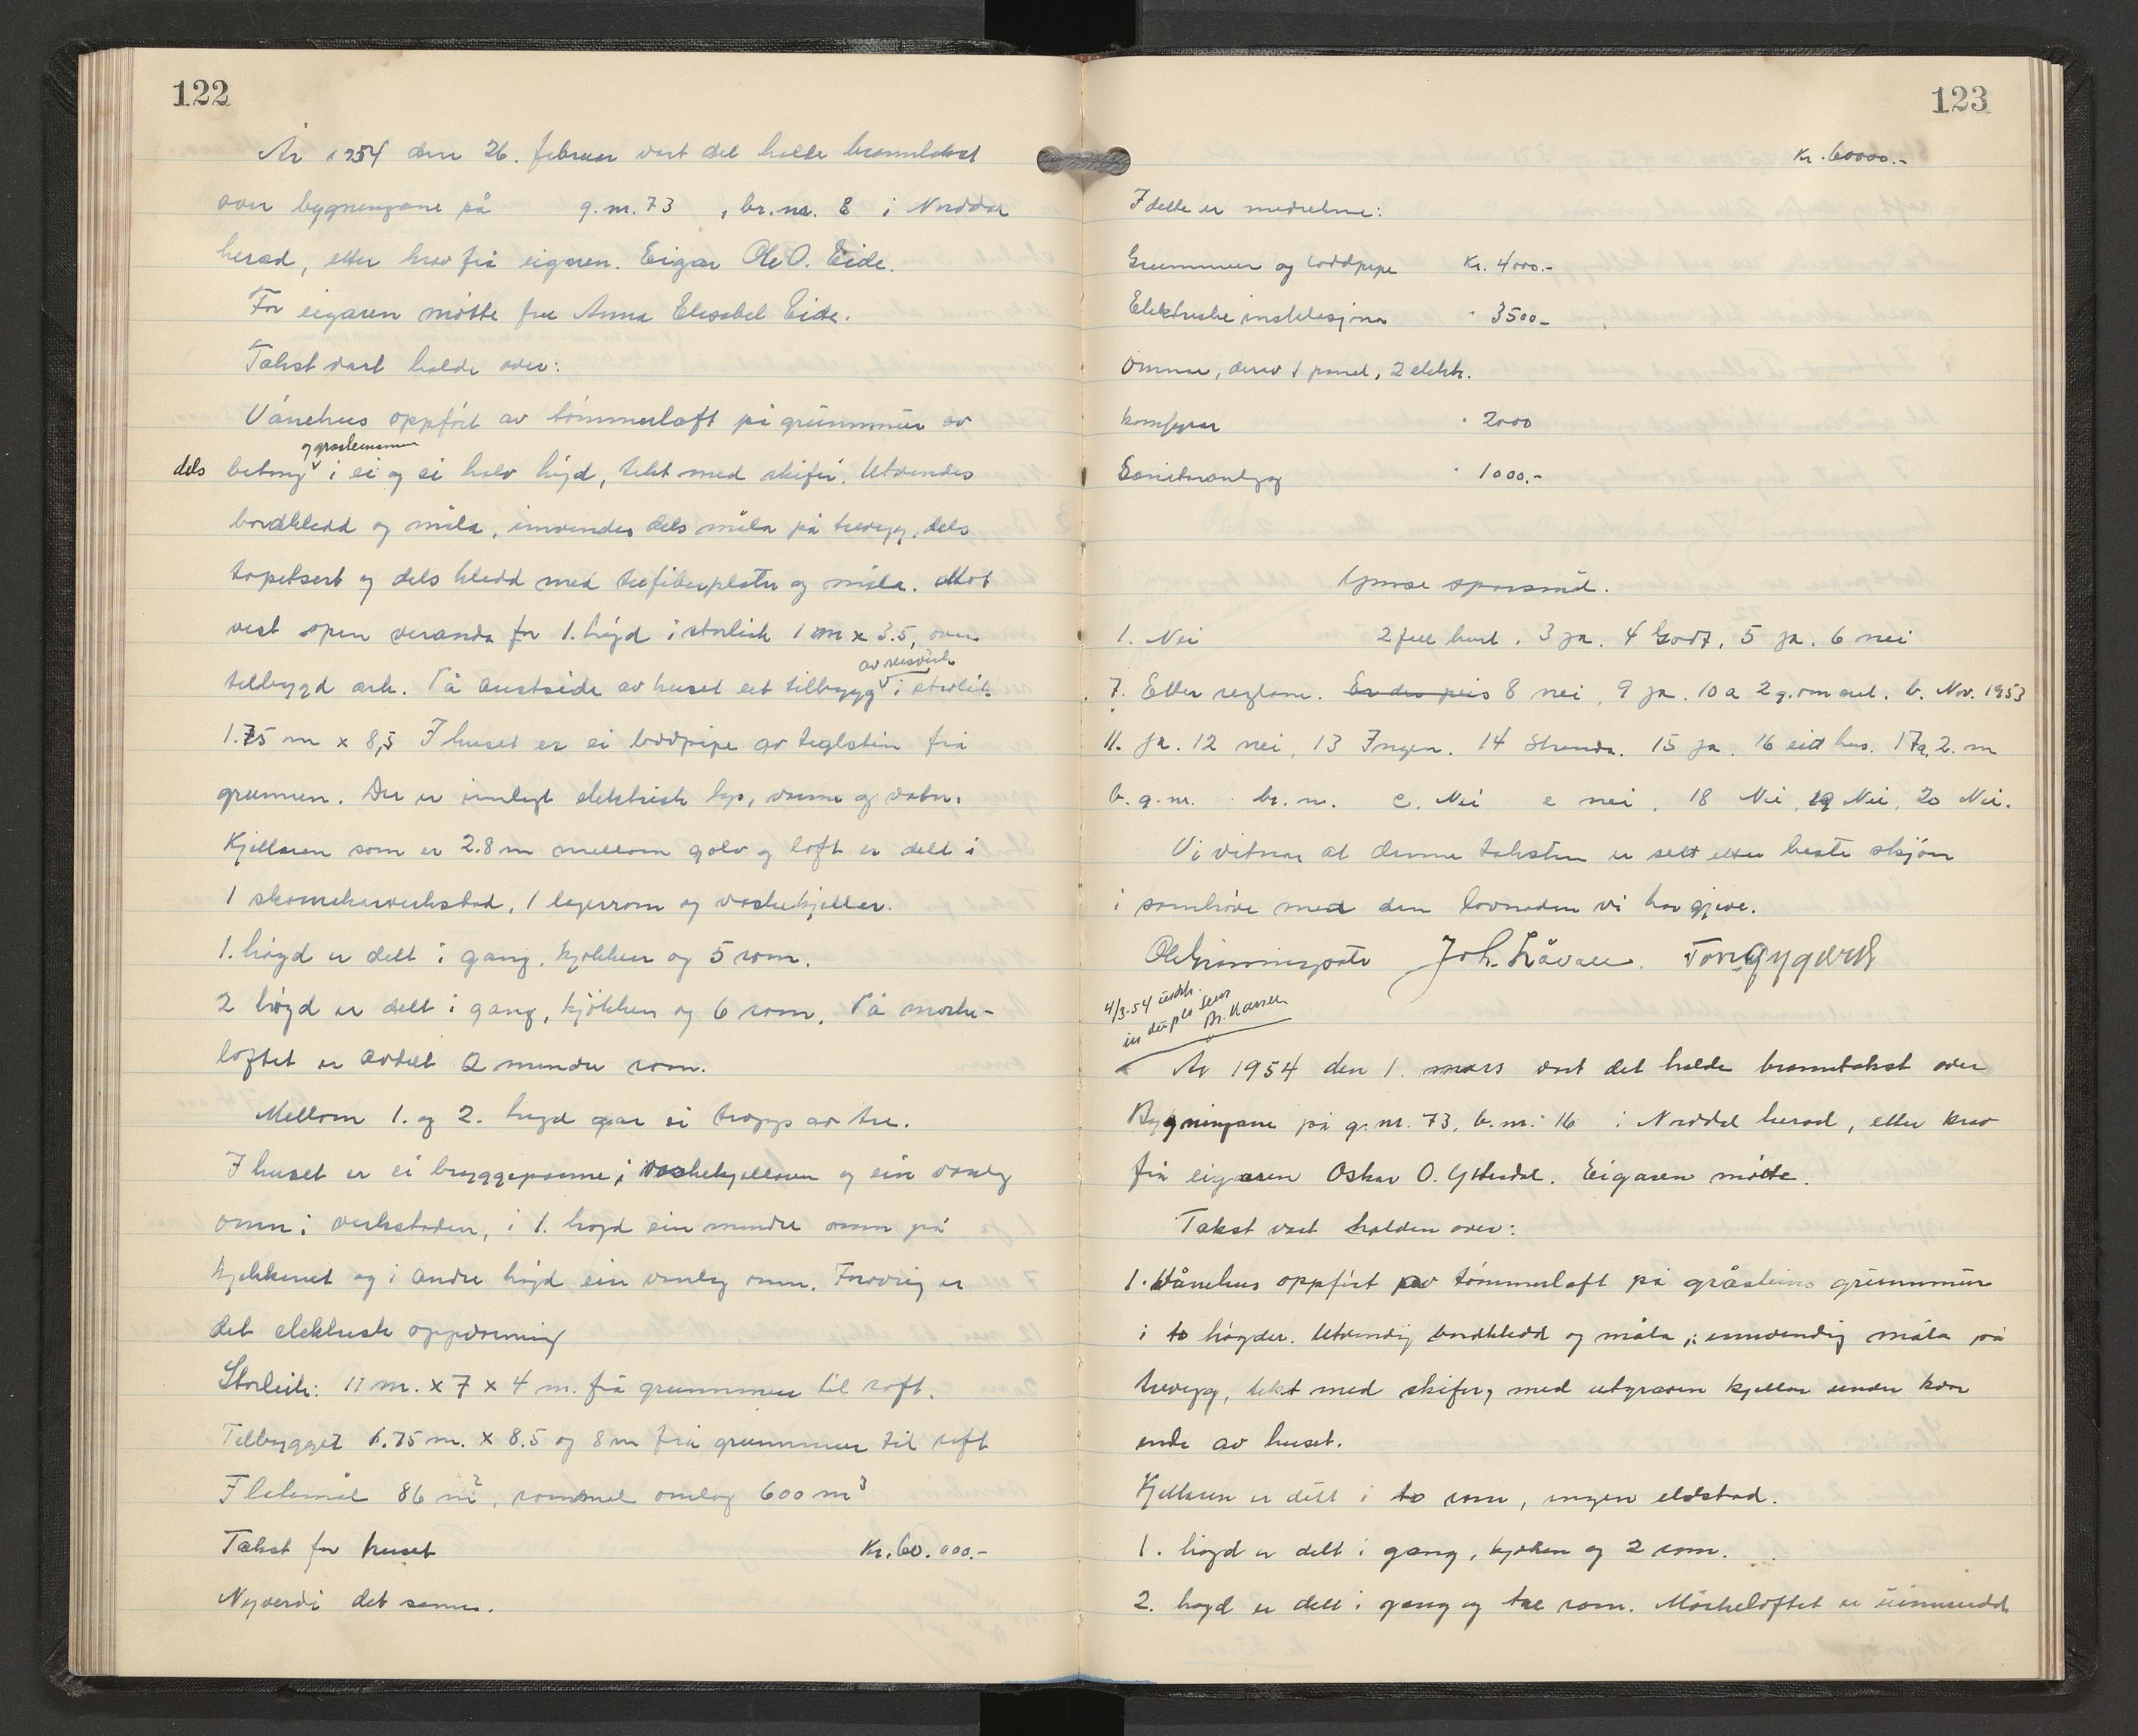 122
År 1954 den 26. februar vart det halde branntakst
over bygningane på g.nr. 73 , br.nr. 8 i Norddal
herad, etter krav frå eigaren. Eigar Ole O. Eide.
For eigaren møtte fru Anna Elisabet Eide.
Takst vart halde over:
Vånehus oppført av tømmerlaft på grunnmur av
og gråsteinsmur
dels betong i ei og ei halv høgd, tekt med skifer. Utvendes
bordkledd og måla, innvendes dels måla på trevegg, dels
tapetsert og dels kledd med trefiberplater og måla. Mot
vest open veranda for 1. høgd i storleik 1 m x 3.5, over
av reisverk
tilbygd ark. På austside av huset eit tilbygg i storleik
1.75 m x 8,5 I huset er ei loddpipe av teglstein frå
grunnen. Der er innlagt elektrisk lys, varme og vatn.
Kjellaren som er 2.8 m mellom golv og loft er delt i
1 skomakerverkstad, 1 lagerrom og vaskekjeller.
1. høgd er delt i gang, kjøkken og 5 rom.
2 høgd er delt i gang, kjøkken og 6 rom. På mørke-
loftet er avdelt 2 mindre rom.
Mellom 1. og 2. høgd går ei tropp av tre.
I huset er ei bryggepanne i vaskekjellaren og ein vanleg
omn i verkstaden, i 1. høgd ein mindre omn på
kjøkkenet og i andre høgd ein vanleg omn. Forøvrig er
det elektrisk oppvarming
Storleik: 11 m. x 7 x 4 m. frå grunnmur til røft.
Tilbygget 1.75 m. x 8.5 og 8 m frå grunnmur til røft
Flatemål 86 m², rommål omlag 600 m³
Takst for huset Kr. 60.000.-
Nyverdi det same.
123
Kr. 60000.-
I dette er medrekna:
Grunnmur og loddpipe Kr. 4000.-
Elektriske installasjonar " 3500-
Omnar, derav 1 panel, 2 elektr.
komfyrar " 2000
Sanitæranlegg " 1000.-
Ymse spørsmål.
1. Nei 2 full hart. 3 ja. 4 Godt. 5 ja. 6 nei
7. Etter reglane. Er der peis 8 nei, 9 ja. 10 a 2 g. om året. b. Nov. 1953
11. ja. 12 nei, 13 Ingen. 14 Stranda. 15 ja. 16 eit hus. 17a, 2. m
b. g.nr. br.nr. c. Nei e nei, 18 Nei, 19 Nei, 20 Nei.
Vi vitnar at denne taksten er sett etter beste skjøn
i samhøve med den lovnaden vi har gjeve.
Joh. Løvoll.
4/3-54
År 1954 den 1. mars vart det halde branntakst over
Bygningane på g.nr. 73, b.nr. 16 i Norddal herad, etter krav
frå eigaren Oskar O. Ytterdal. Eigaren møtte.
Takst vart halden over:
1. Vånehus oppført av tømmerlaft på gråsteins grunnmur
i to høgder. Utvendig bordkledd og måla, innvendig måla på
trevegg, tekt med skifer, med utgraven kjellar under kvar
ende av huset.
Kjellaren er delt i to rom, ingen eldstad.
1. høgd er delt i gang, kjøken og 2 rom.
2. høgd er delt i gang og tre rom. Mørkeloftet er uinnreidd